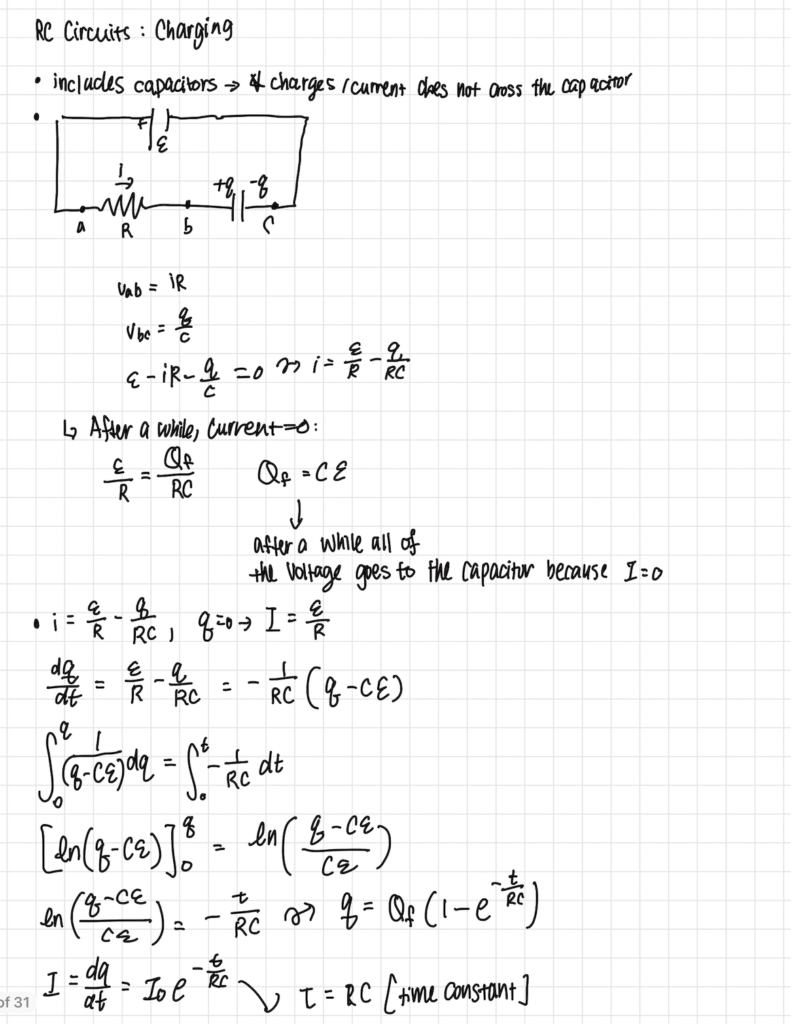 RC Circuits : Charging
• includes capacitors → charges / current does not cross the capacitor
•
+ ε
i →
+q -q
a R b C
Vab = iR
Vbc = q/C
ε - iR - q/C = 0 ⇝ i = ε/R - q/RC
↳ After a while, current = 0:
ε/R = Qf/RC Qf = Cε
↓
after a while all of
the voltage goes to the capacitor because I=0
• i = ε/R - q/RC , q=0 → I = ε/R
dq/dt = ε/R - q/RC = - 1/RC (q - Cε)
∫₀^q 1/(q-Cε) dq = ∫₀^t - 1/RC dt
[ln(q-Cε)]₀^q = ln((q-Cε)/Cε)
ln((q-Cε)/Cε) = - t/RC ⇝ q = Qf (1 - e^(-t/RC))
I = dq/dt = I₀ e^(-t/RC) ↘ τ = RC [time constant]
of 31